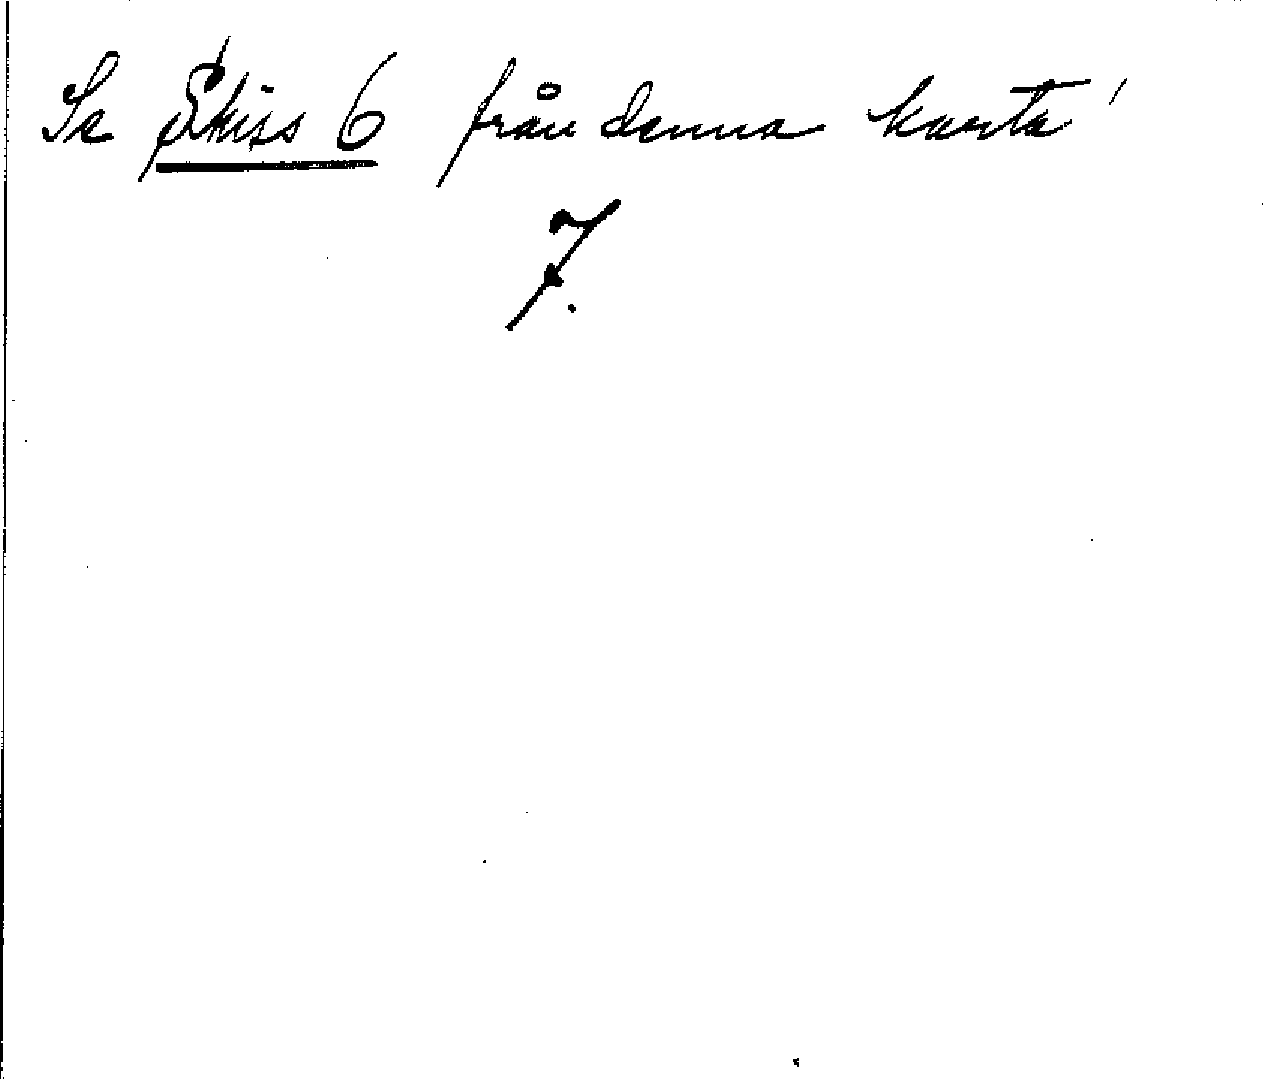 Se Skiss 6 från denna karta
7.